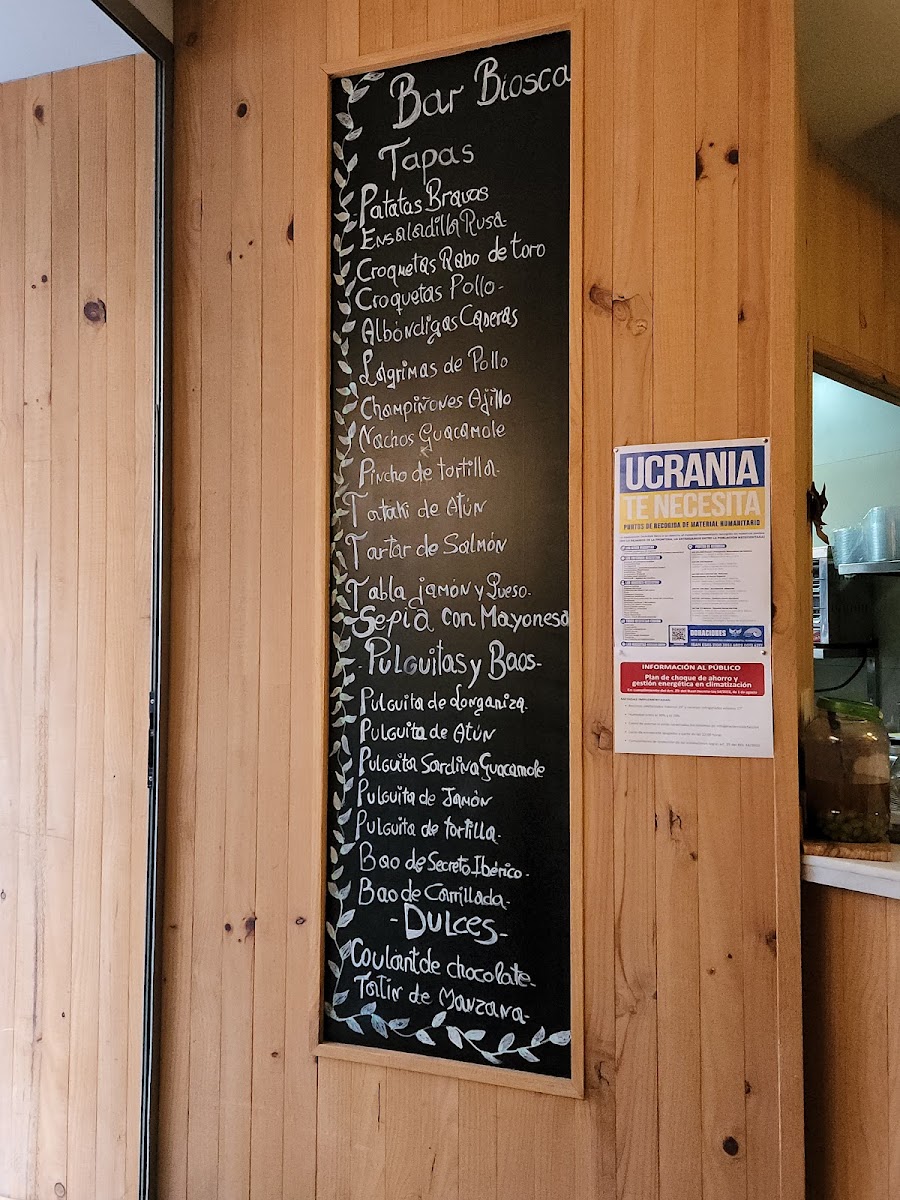 Bar Biosca
Tapas
Patatas Bravas
Ensaladilla Rusa-
Croquetas Rabo de toro
Croquetas Pollo-
Albóndigas Caseras
Lágrimas de Pollo
Champiñones Ajillo
Nachos Guacamole
Pincho de tortilla-
Tataki de Atún
Tartar de Salmón
Tabla jamón y Queso-
Sepia con Mayonesa
-Pulguitas y Baos-
Pulguita de Longaniza-
Pulguita de Atún
Pulguita Sardina Guacamole
Pulguita de Jamón
Pulguita de tortilla-
Bao de Secreto Ibérico-
Bao de Carrillada-
-Dulces-
Coulant de chocolate-
Tatín de Manzana-
UCRANIA
TE NECESITA
PUNTOS DE RECOGIDA DE MATERIAL HUMANITARIO
DONACIONES
INFORMACIÓN AL PÚBLICO
Plan de choque de ahorro y
gestión energética en climatización